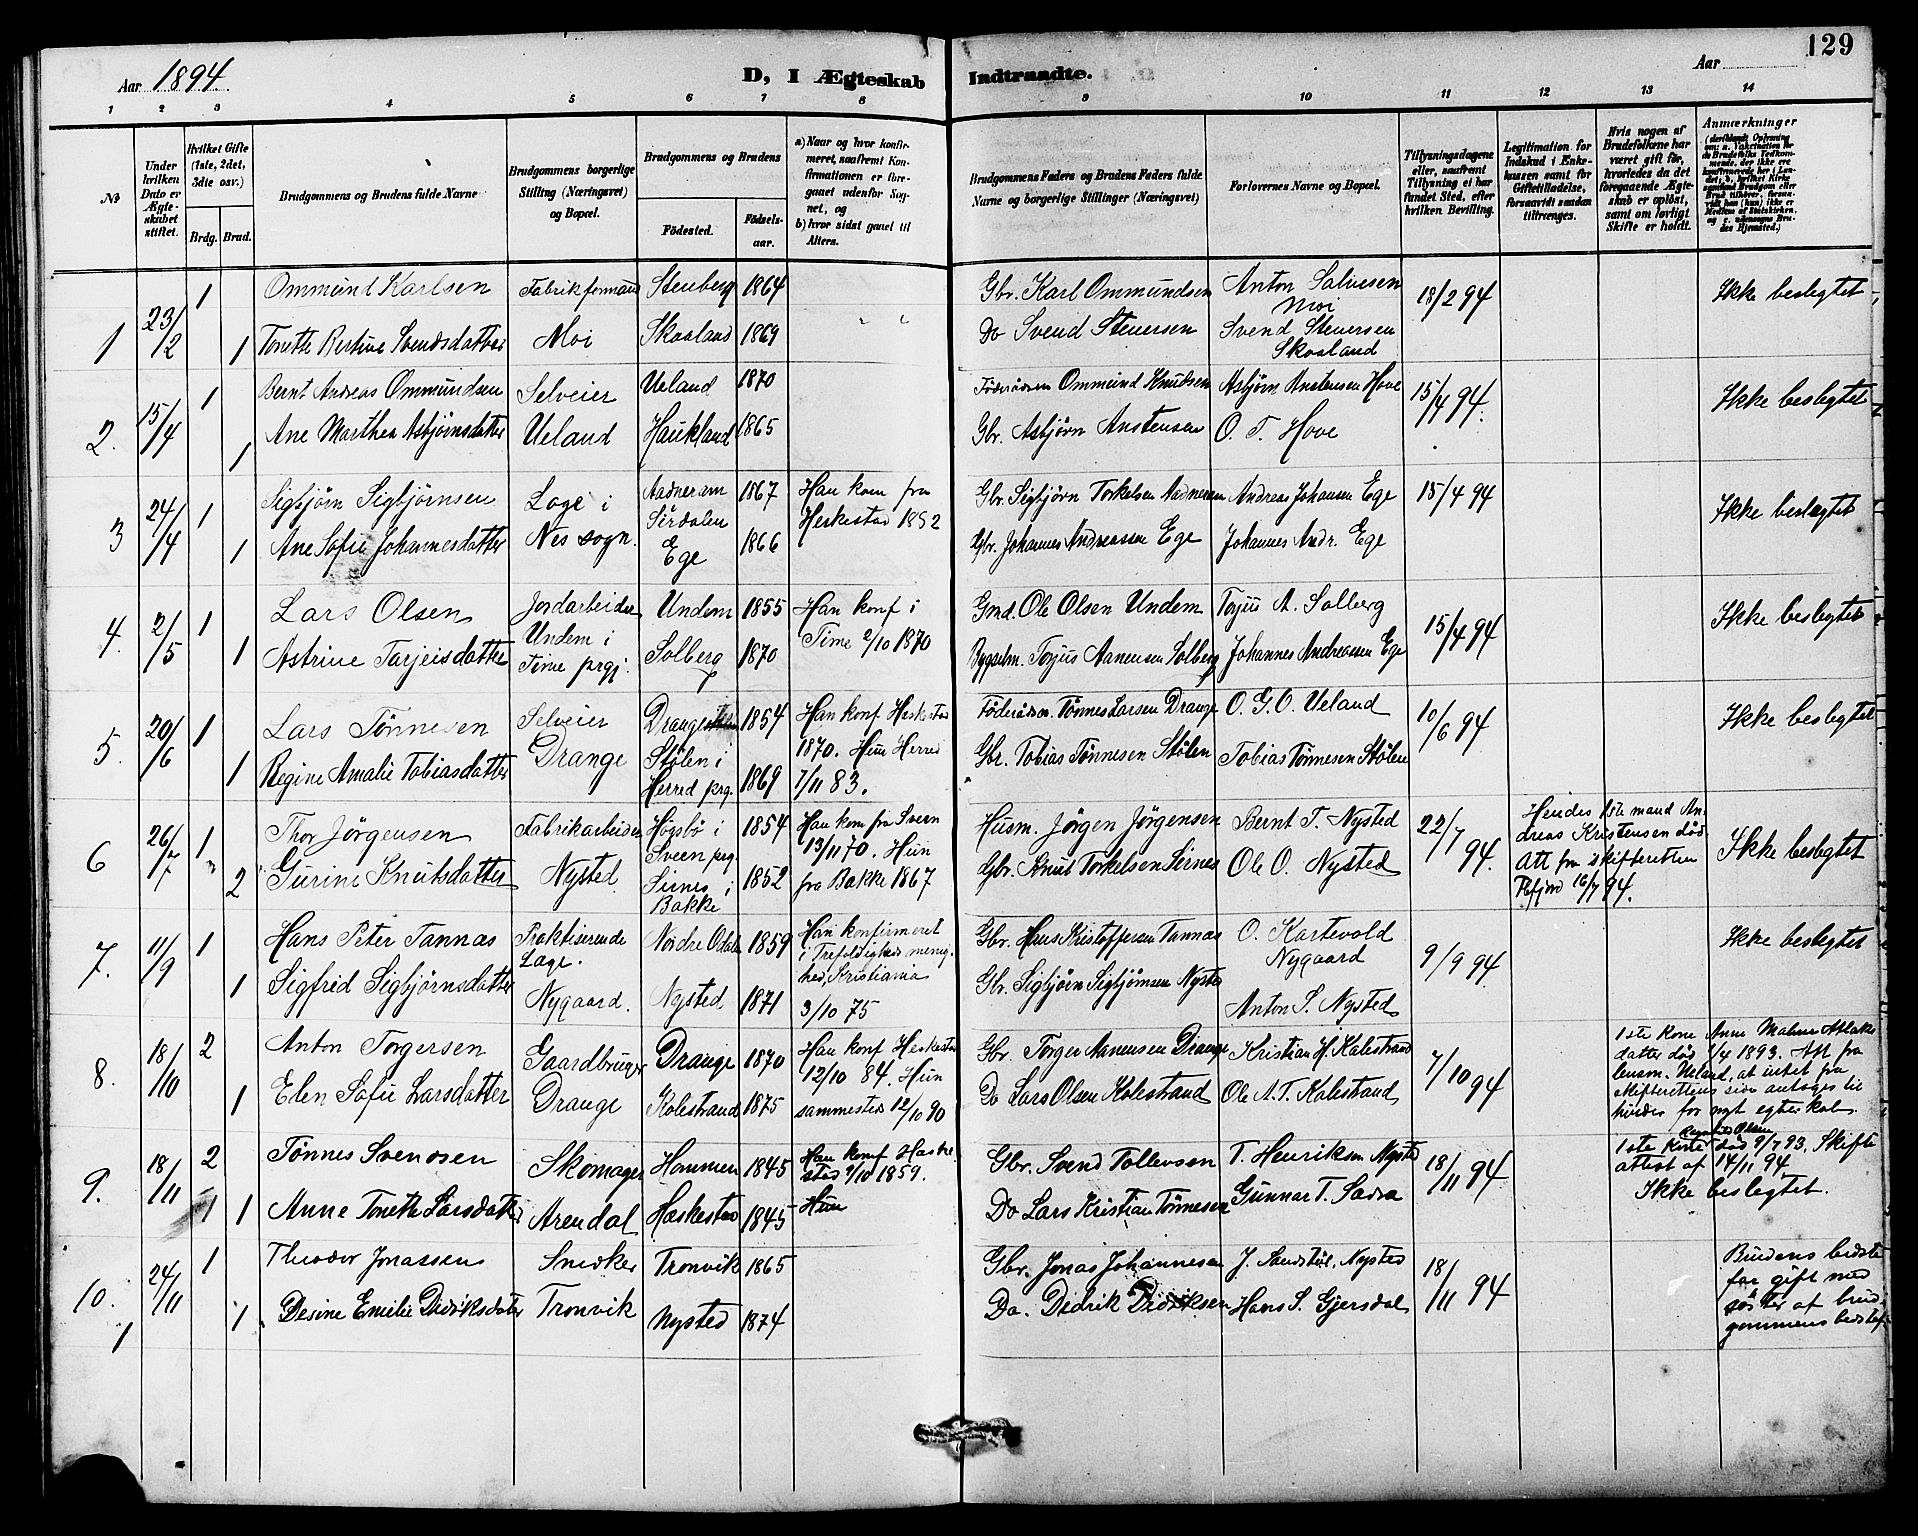 129
Aar 1894.
D, I Ægteskab Indtraadte.
Aar
1 2 3 4 5 6 7 8 9 10 11 12 13 14
No
Under hvilken Dato er Ægteskabet stiftet.
Hvilket Gifte (1ste, 2det, 3die osv.)
Brdg. Brud.
Brudgommens og Brudens fulde Navne
Brudgommens borgerlige Stilling (Næringsvei) og Bopæl.
Brudgommens og Brudens
Födested. Födselsaar.
a) Naar og hvor konfirmeret, saafremt Konfirmationen er foregaaet udenfor Sognet, og
b) hvor sidst gaaet til Alters.
Brudgommens Faders og Brudens Faders fulde Navne og borgerlige Stillinger (Næringsvei)
Forlovernes Navne og Bopæl.
Tillysningsdagene eller, saafremt Tillysning ei har fundet Sted, efter hvilken Bevilling.
Legitimation for Indskud i Enkekassen samt for Giftetilladelse, forsaavidt saadan tiltrænges.
Hvis nogen af Brudefolkene har været gift før, hvorledes da det foregaaende Ægteskab er opløst, samt om lovligt Skifte er holdt.
Anmærkninger
1 23/2 1 Ommund Karlsen Fabrikformand Stenberg 1864 Gbr. Karl Ommundsen Anton Salvesen Moi 18/2 94 Ikke beslegtet
1 Tonette Bertine Svendsdatter Moi Skaaland 1869 Do Svend Stenersen Svend Stenersen Skaaland
2. 15/4 1 Bernt Andreas Ommundsen Selveier Ueland 1870 Föderaadsm Ommund Knudsen Asbjørn Anstensen Hove 15/4 94. Ikke beslegtet
1 Ane Marthea Asbjørnsdatter Ueland Haukland 1865 Gbr. Asbjørn Anstensen O. T. Hove
3 24/4 1 Sigbjørn Sigbjørnsen Læge i Aadneram Sirdalen 1867 Han kom fra Heskestad 1892 Gbr. Sigbjørn Torkelsen Aadneram Andreas Johansen Ege 15/4 94 Ikke beslægtet
1 Ane Sofie Johannesdatter Nes sogn. Ege 1866 Gbr. Johannes Andreassen Ege Johannes Andr. Ege
4. 2/5 1 Lars Olsen Jordarbeider Undem 1855 Han konf i Time 2/10 1870 Gmd. Ole Olsen Undem Torjus A. Solberg 15/4 94 Ikke beslegtet
1 Astrine Tarjeisdatter Undem i Time prgj. Solberg 1870 Bygselm. Torjus Aanensen Solberg Johannes Andreassen Ege
5. 20/6 1 Lars Tönnesen Selveier Drange 1854 Han konf Heskestad 1870. Hun Herred 7/11 83. Föderaadsm. Tønnes Larsen Drange O. G. O. Ueland 10/6 94 Ikke beslegtet
1 Regine Amalie Tobiasdatter Drange Stölen i Herred prg. 1869 Gbr. Tobias Tønnesen Stølen Tobias Tønnesen Stølen
6 26/7 1 Thor Jörgensen Fabrikarbeider Høgsbö i Sveen prg. 1854 Han kom fra Sveen 13/11 70. Hun fra Bakke 1867 Husm. Jörgen Jörgensen Bernt T. Nysted 22/7 94. Hendes 1ste mand Andreas Kristensen död. Att fra skifteretten 16/7 94. Ikke beslegtet
2 Gurine Knutsdatter Nysted Sirnes i Bakke 1852 Gbr. Knut Torkelsen Sirnes Ole O. Nysted
7. 11/9 1 Hans Peter Tannæs Praktiserende Læge. Nordre Odalen 1859 Han konfirmeret i Trefoldigheds menighed, Kristiania 3/10 75 Gbr. Hans Kristoffersen Tannæs O. Kartevold Nygaard 9/9 94 Ikke beslegtet
1 Sigfred Sigbjørnsdatter Nygaard. Nysted 1871 Gbr. Sigbjørn Sigbjørnsen Nysted Anton S. Nysted
8. 18/10 2 Anton Torgersen Gaardbruger Drange 1870 Han konf Heskestad 12/10 84. Hun sammested 12/10 90 Gbr. Torger Aanensen Drange Kristian H. Kalestrand 7/10 94 1ste Kone Anne Malene Atlaksdatter död 1/4 1893. Att fra lensm. Ueland, at intet fra skifterettens side antages til hinder for nyt egteskab.
1 Elen Sofie Larsdatter Drange Kolestrand 1875 Do Lars Olsen Kolestrand Ole A. T. Kalestrand
9. 18/11 2 Tønnes Svendsen Skomager Hommen 1845 Han konf Heskestad 9/10 1859. Gbr. Svend Tollevsen T. Henriksen Nysted 18/11 94 1ste Kone död 9/7 93. Skifteattest af 14/11 94. Ikke beslegtet.
1 1 Anne Tonette Larsdatter Arendal Heskestad 1845 Hun Do Lars Kristian Tönnesen Gunnar T. Sædra
10. 24/11 1 Theodor Jonassen Snedker Tronvik 1865 Gbr. Jonas Johannesen J. Sandstöl, Nysted 18/11 94 Brudens bedstefar gift med söster af brudgommens bedstef.
1 1 Desine Emilie Didriksdatter Tronvik Nysted 1874 Do. Didrik Didriksen Hans S. Gjersdal